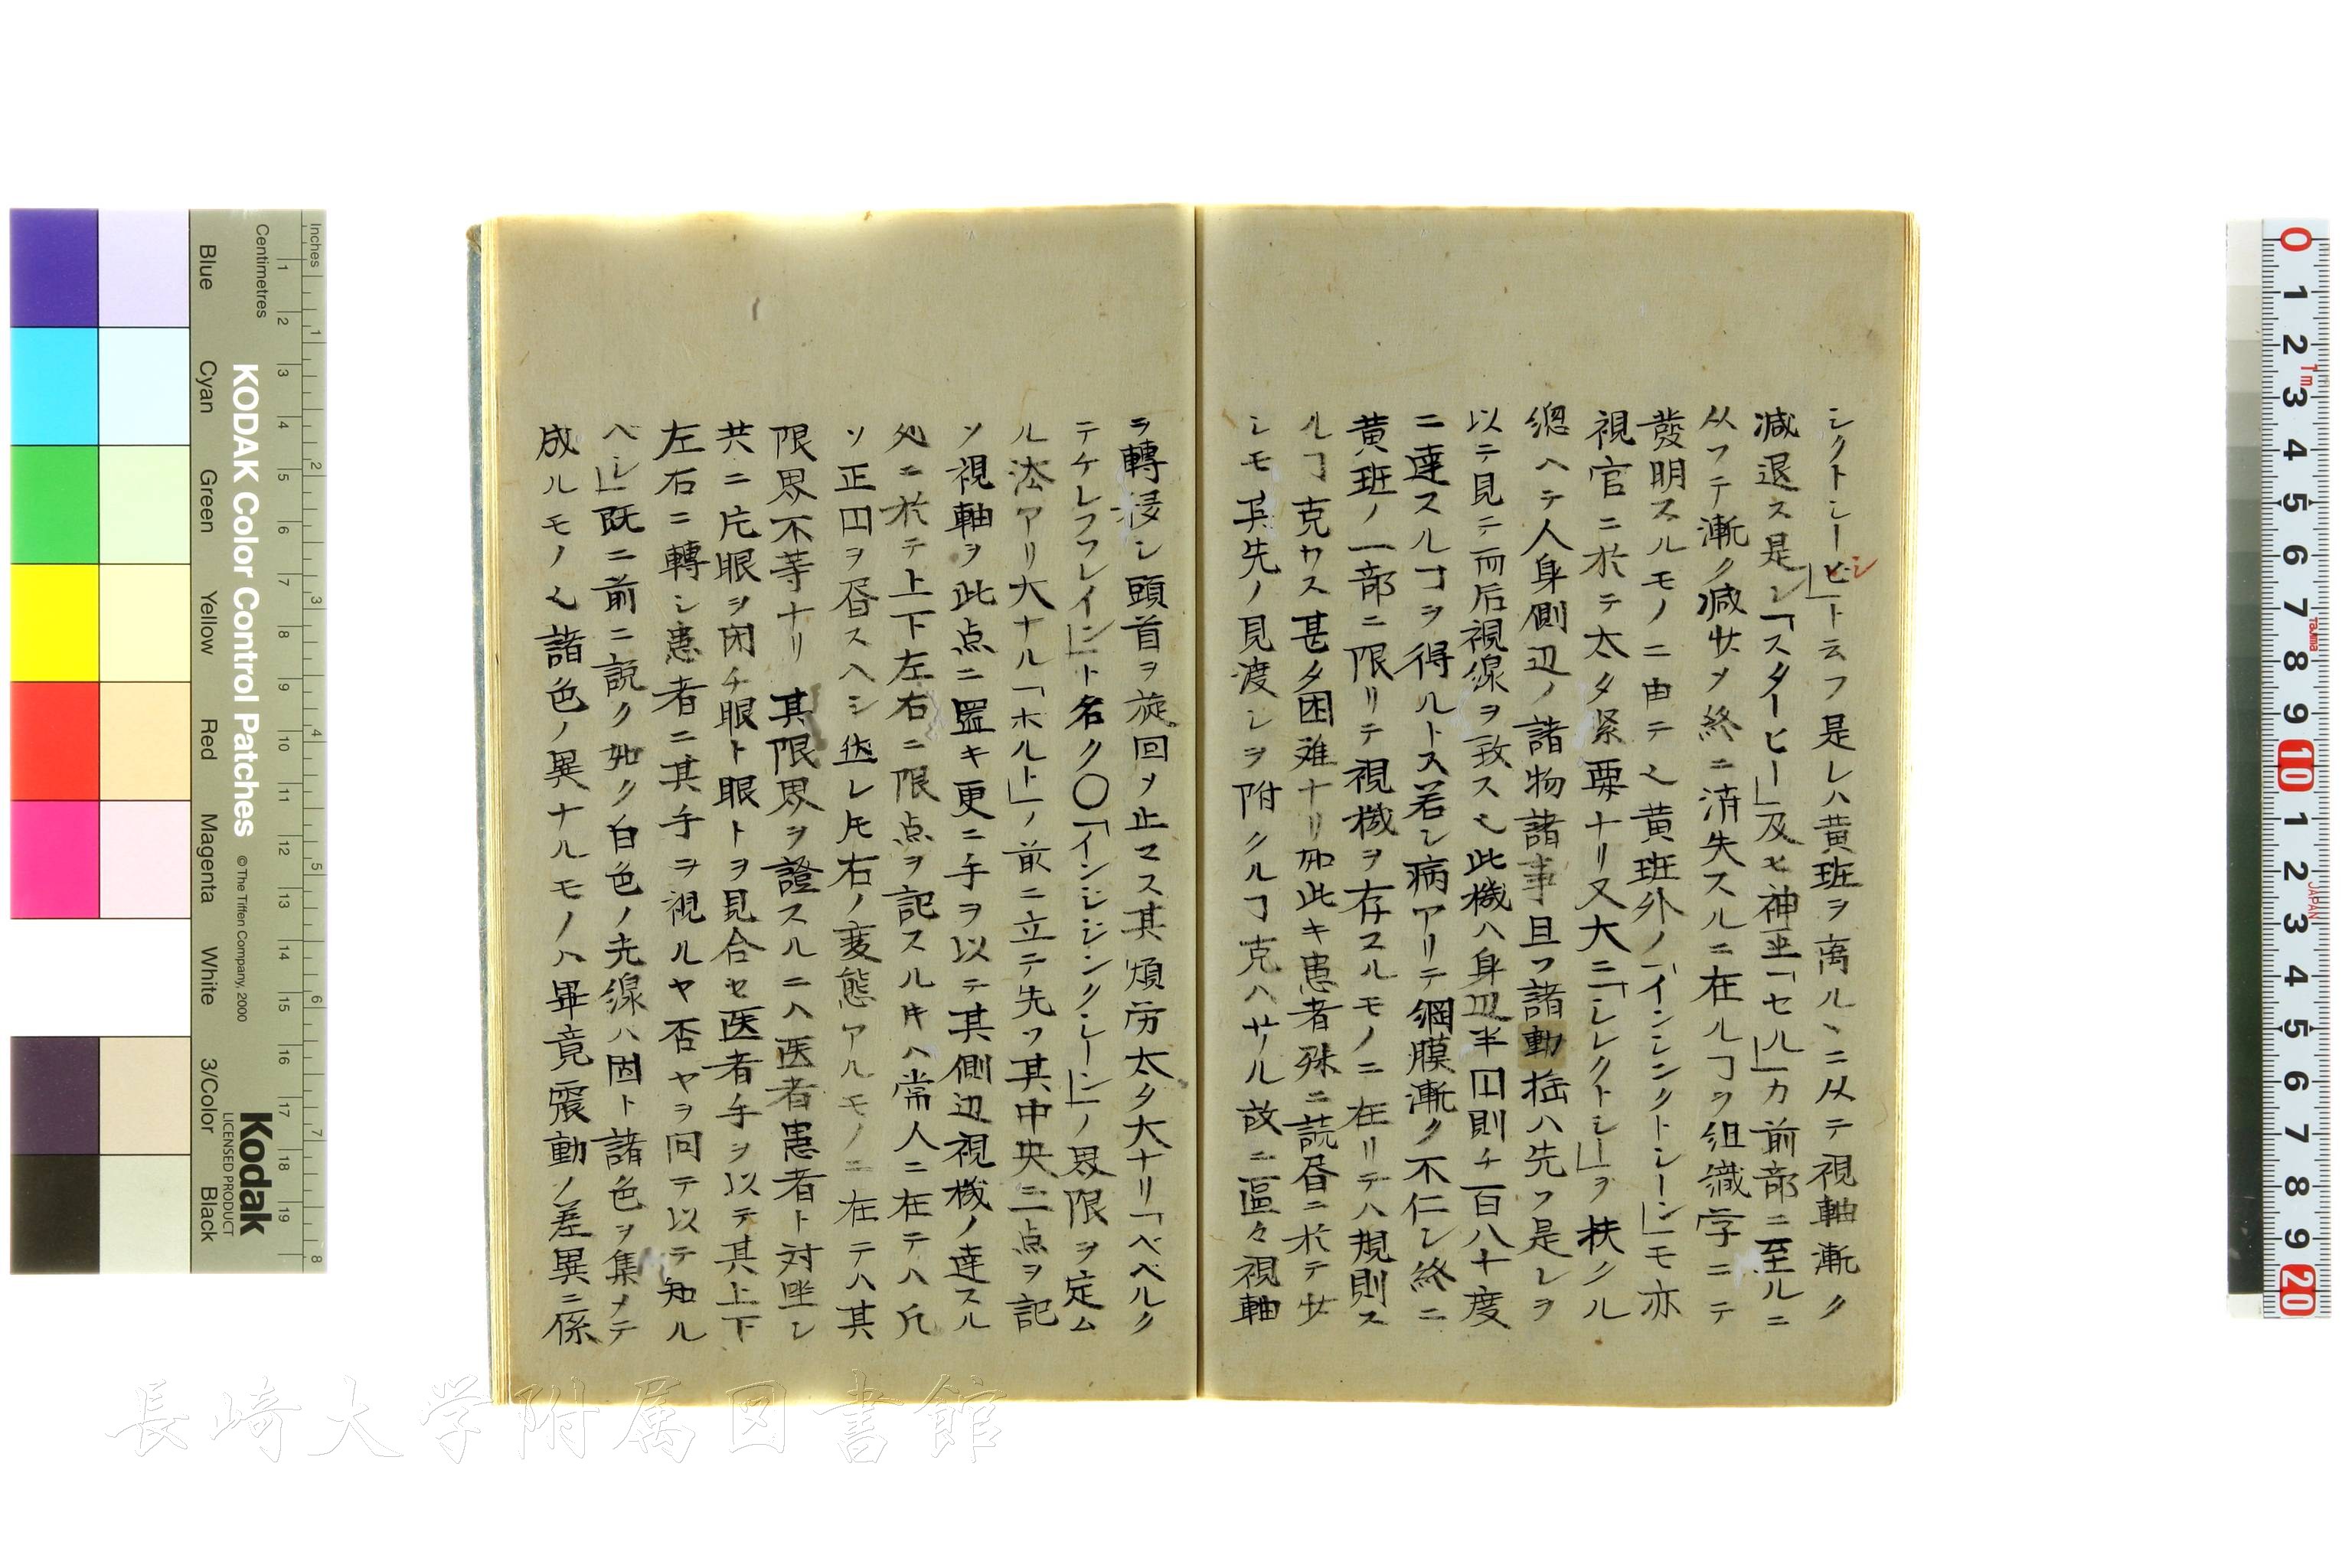 シクトシーヒシ」ト云フ是レハ黄班ヲ离ルヽニ从テ視軸漸ク
減退ス是レ「スターヒー」及ヒ神巠「セル」カ前部ニ至ルニ
从フテ漸ク减少メ終ニ消失スルニ在ルヿヲ組織学ニテ
發明スルモノニ由テ也黄班外ノ「インシンクトシーン」モ亦
視官ニ於テ太タ緊要ナリ又大ニ「レレクトシー」ヲ扶クル
總ヘテ人身側辺ノ諸物諸事且ツ諸動揺ハ先ツ是レヲ
以テ見テ而后視線ヲ致ス也此機ハ身辺半囗則チ一百八十度
ニ達スルヿヲ得ルトス若シ病アリテ網膜漸ク不仁シ終ニ
黄班ノ一部ニ限リテ視機ヲ存スルモノニ在リテハ規則ス
ルヿ克ワス甚タ困难ナリ如此キ患者殊ニ謊昏ニ於テ少
シモ其先ノ見渡シヲ附クルヿ克ハサル故ニ區々視軸
ヲ轉移シ頭首ヲ旋回メ止マス其煩労太タ大ナリ「ベベルク
テケレフフレイン」ト名ク〇「インジンクシーン」ノ界限ヲ定ム
ル法アリ大ナル「ホルト」ノ前ニ立テ先ツ其中央ニ一点ヲ記
ソ視軸ヲ此点ニ置キ更ニ手ヲ以テ其側辺視機ノ達スル
処ニ於テ上下左右ニ限点ヲ記スル𪜈ハ常人ニ在テハ凡
ソ正囗ヲ昏スヘシ然レ𪜈右ノ変態アルモノニ在テハ其
限界不等ナリ其限界ヲ證スルニハ医者患者ト対坐シ
共ニ片眼ヲ闭チ眼ト眼トヲ見合セ医者手ヲ以テ其上下
左右ニ轉シ患者ニ其手ヲ視ルヤ否ヤヲ问テ以テ知ル
ベシ」既ニ前ニ説ク如ク白色ノ光線ハ固ト諸色ヲ集メテ
成ルモノ也諸色ノ異ナルモノハ畢竟震動ノ差異ニ係
長崎大学附属図書館
KODAK Color Control Patches
© The Tiffen Company, 2000
Kodak
LICENSED PRODUCT
Inches
Centimetres
Blue
Cyan
Green
Yellow
Red
Magenta
White
3/Color
Black